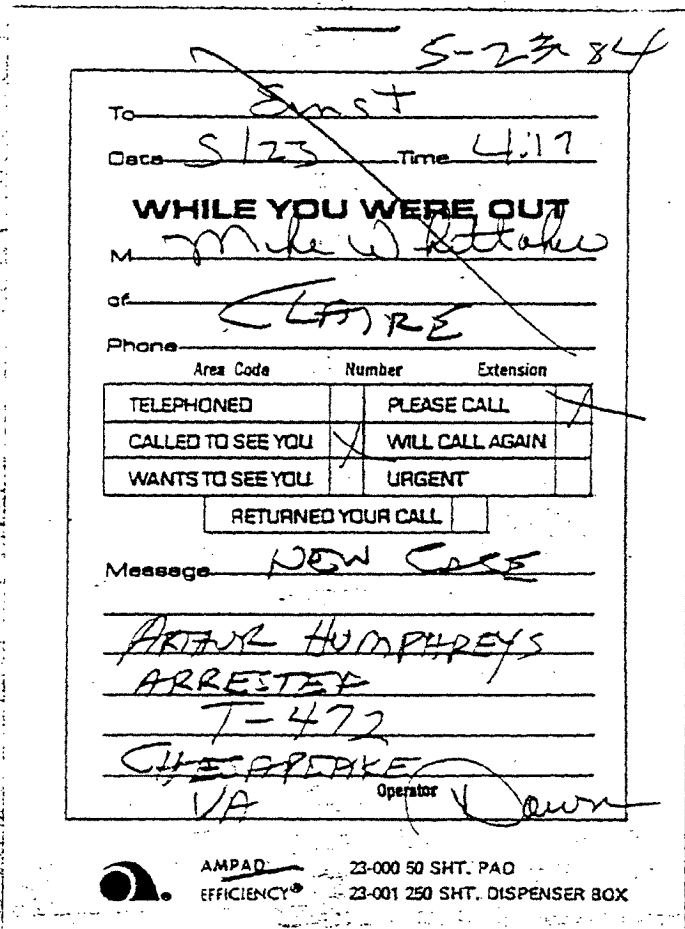 5-23-84
To
Date 5/23 Time 4:17
WHILE YOU WERE OUT
M Mike Whittaker
of CLAIRE
Phone
Area Code Number Extension
TELEPHONED PLEASE CALL X
CALLED TO SEE YOU X WILL CALL AGAIN
WANTS TO SEE YOU URGENT
RETURNED YOUR CALL
Message NEW CASE
ARTHUR HUMPHREYS
ARRESTED
T-472
CHESAPEAKE
VA Operator Dawn
AMPAD 23-000 50 SHT. PAD
EFFICIENCY® 23-001 250 SHT. DISPENSER BOX